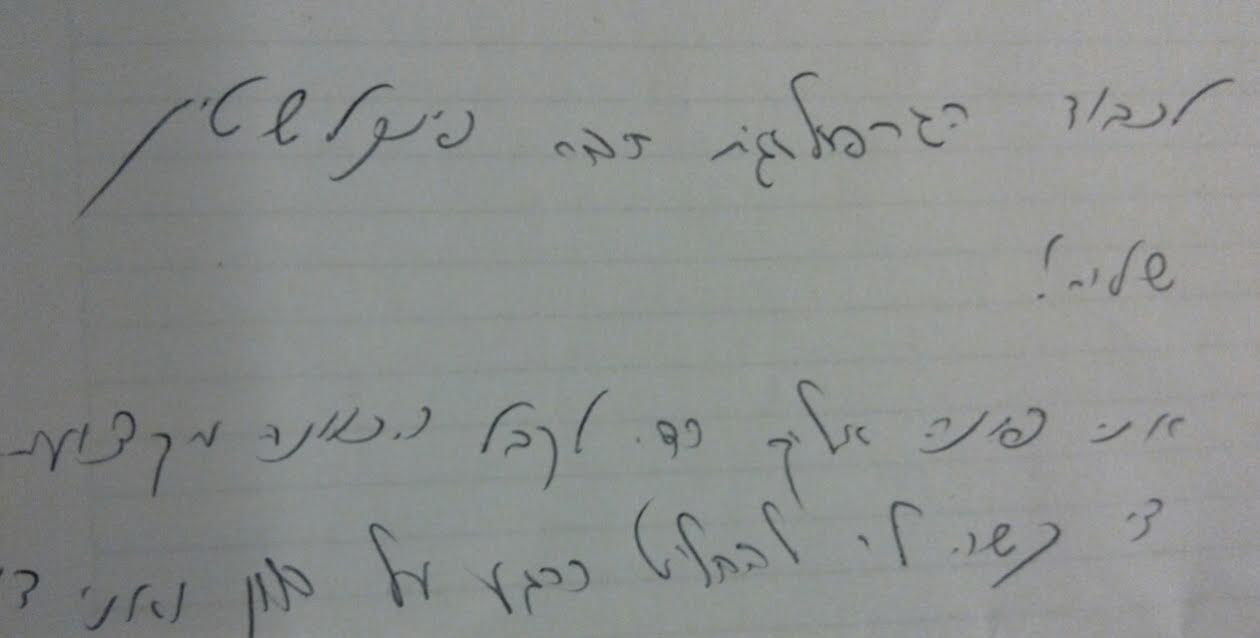 לכבוד הגרפולוגית תמר פינקלשטיין
שלום!
אני פונה אליך כדי לקבל הכוונה מקצועית
כי קשה לי להחליט כרגע על כוון ואני די